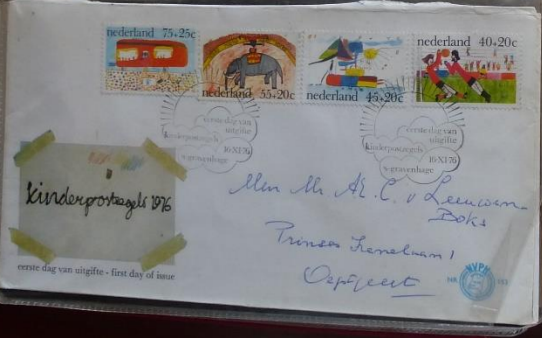 nederland 75+25c
nederland 55+20c
nederland 45+20c
nederland 40+20c
eerste dag van
uitgifte
kinderpostzegels
16 XI 76
's-gravenhage
eerste dag van
uitgifte
kinderpostzegels
16 XI 76
's-gravenhage
kinderpostzegels 1976
eerste dag van uitgifte - first day of issue
v Leeuwen
Boks
Prinses Irenelaan 1
Oegstgeest
NVPH